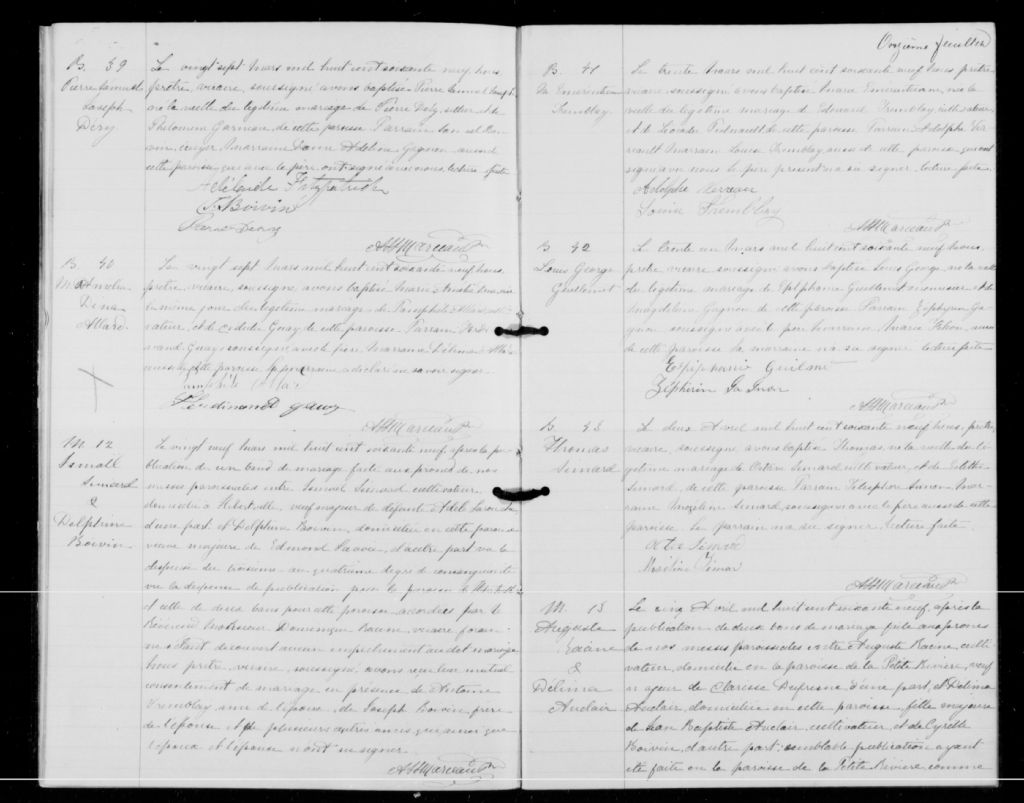 B. 39
Pierre
Joseph
Déry
Le vingt sept Mars mil huit cent soixante neuf, nous
prêtre, vicaire, soussigné avons baptisé Pierre
né la veille du légitime mariage de Pierre Déry, sellier et de
Philomène Garneau, de cette paroisse Parrain
Marraine Dame Adeline Gagnon aussi de
cette paroisse, qui avec le père ont signé avec nous, lecture faite
Adelaide Fitzpatrick
J. Boivin
Pierre Dery
AH Marceau Ptre
B. 40
M. Amelia
Dina
Allard
Le vingt sept Mars mil huit cent soixante neuf, nous,
prêtre, vicaire, soussigné, avons baptisé Marie
le même jour du légitime mariage de Pamphile Allard, cul-
tivateur, et de Guay de cette paroisse Parrain Ferdi-
nand Guay soussigné avec le père, Marraine
aussi de cette paroisse a déclaré ne savoir signer.
Ferdinand guay
AH Marceau Ptre
M. 12
Ismaël
Simard
&
Delphine
Boivin
Le vingt neuf Mars mil huit cent soixante neuf, après la pu-
blication de un band de mariage faite aux prônes de nos
messes paroissiales entre Ismaël Simard cultivateur,
domicilié à Hébertville, veuf majeur de défunte Adèle
d'une part, et Delphine Boivin, domiciliée en cette paroisse
veuve majeure de Edmond Savoie, d'autre part vu la
dispense du troisième au quatrième degré de consanguinité
vu la dispense de publication pour la paroisse
et celle de deux bans pour cette paroisse accordées par le
Révérend Monsieur Dominique Racine, vicaire forain
ne s'étant découvert aucun empêchement au dit mariage
Nous prêtre, vicaire, soussigné avons reçu leur mutuel
consentement de mariage en présence de Antoine
Tremblay ami de l'époux, de Joseph Boivin père
de l'épouse, et de plusieurs autres amis qui ainsi que
l'époux et l'épouse n'ont su signer.
AH Marceau Ptre
Onzième feuillet
B. 41
M. Emerentienne
Tremblay
Le trente Mars mil huit cent soixante neuf nous prêtre
vicaire soussigné avons baptisé Marie Emerentienne, née la
veille du légitime mariage de Edouard Tremblay cultivateur
et de Perreault de cette paroisse Parrain Adolphe
Marraine Louise Tremblay aussi de cette paroisse qui ont
signé avec nous le père présent n'a su signer, lecture faite.
Adolphe
Louise Tremblay
AH Marceau Ptre
B. 42
Louis George
Guillemet
Le trente un Mars mil huit cent soixante neuf, nous,
prêtre, vicaire soussigné avons baptisé Louis George, né la veille
du légitime mariage de Epiphane Guillemet menuisier et de
Magdeleine Gagnon de cette paroisse Parrain Zéphirin Ga-
gnon soussigné avec le père Marraine Marie aussi
de cette paroisse la marraine n'a su signer lecture faite
Epiphane
Zépherin
AH Marceau Ptre
B. 43
Thomas
Simard
Le deux Avril mil huit cent soixante neuf, nous, prêtre,
vicaire, soussigné, avons baptisé Thomas, né la veille du lé-
gitime mariage de Simard cultivateur, et de
Simard, de cette paroisse Parrain Télesphore Simon Mar-
raine Simard, soussignée avec le père aussi de cette
paroisse. Le parrain n'a su signer, lecture faite.
Simard
Simar
AH Marceau Ptre
M. 13
Auguste
Racine
&
Délima
Auclair
Le cinq Avril mil huit cent soixante neuf, après la
publication de deux bans de mariage faite aux prônes
de nos messes paroissiales entre Auguste Racine, culti-
vateur, domicilié en la paroisse de la Petite Rivière, veuf
majeur de Clarisse Dufresne d'une part, et Délima
Auclair, domiciliée en cette paroisse, fille majeure
de Jean Baptiste Auclair, cultivateur, et de
Boivin, d'autre part; semblable publication ayant
été faite en la paroisse de la Petite Rivière, comme